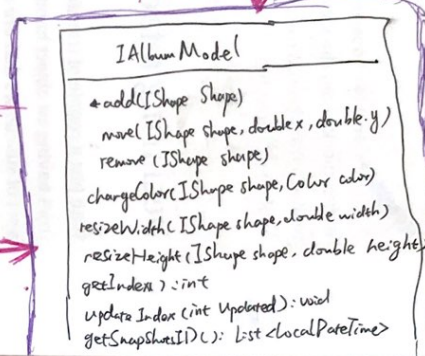 IAlbumModel
+add(IShape Shape)
move(IShape shape, double x, double y)
remove (IShape shape)
changeColor(IShape shape, Color color)
resizeWidth(IShape shape, double width)
resizeHeight(IShape shape, double height)
getIndex( ): int
update Index (int Updated): void
getSnapShotsID(): List<LocalDateTime>